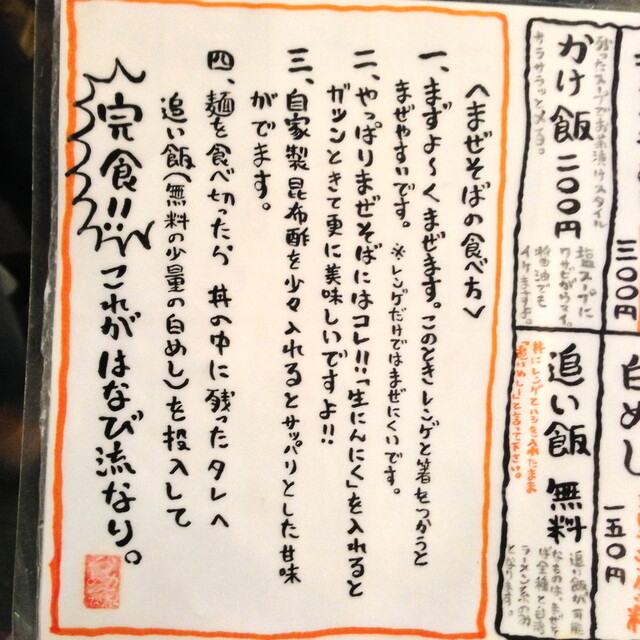 白めし
一五〇円
三〇〇円
かけ飯 二〇〇円
残ったスープでお茶漬けスタイル
サラサラッと〆る。
塩スープに
ワサビがウマイ。
醤油でも
イケますよ。
追い飯 無料
丼にレンゲとハシを入れたまま
「追いめし!」と言って下さい。
〈まぜそばの食べ方〉
一、まずよ〜くまぜます。このときレンゲと箸をつかうと
まぜやすいです。※レンゲだけではまぜにくいです。
二、やっぱりまぜそばにはコレ!!「生にんにく」を入れると
ガツンときて更に美味しいですよ!!
三、自家製昆布酢を少々入れるとサッパリとした甘味
がでます。
四、麺を食べ切ったら 丼の中に残ったタレへ
追い飯(無料の少量の白めし)を投入して
完食!! これがはなび流なり。